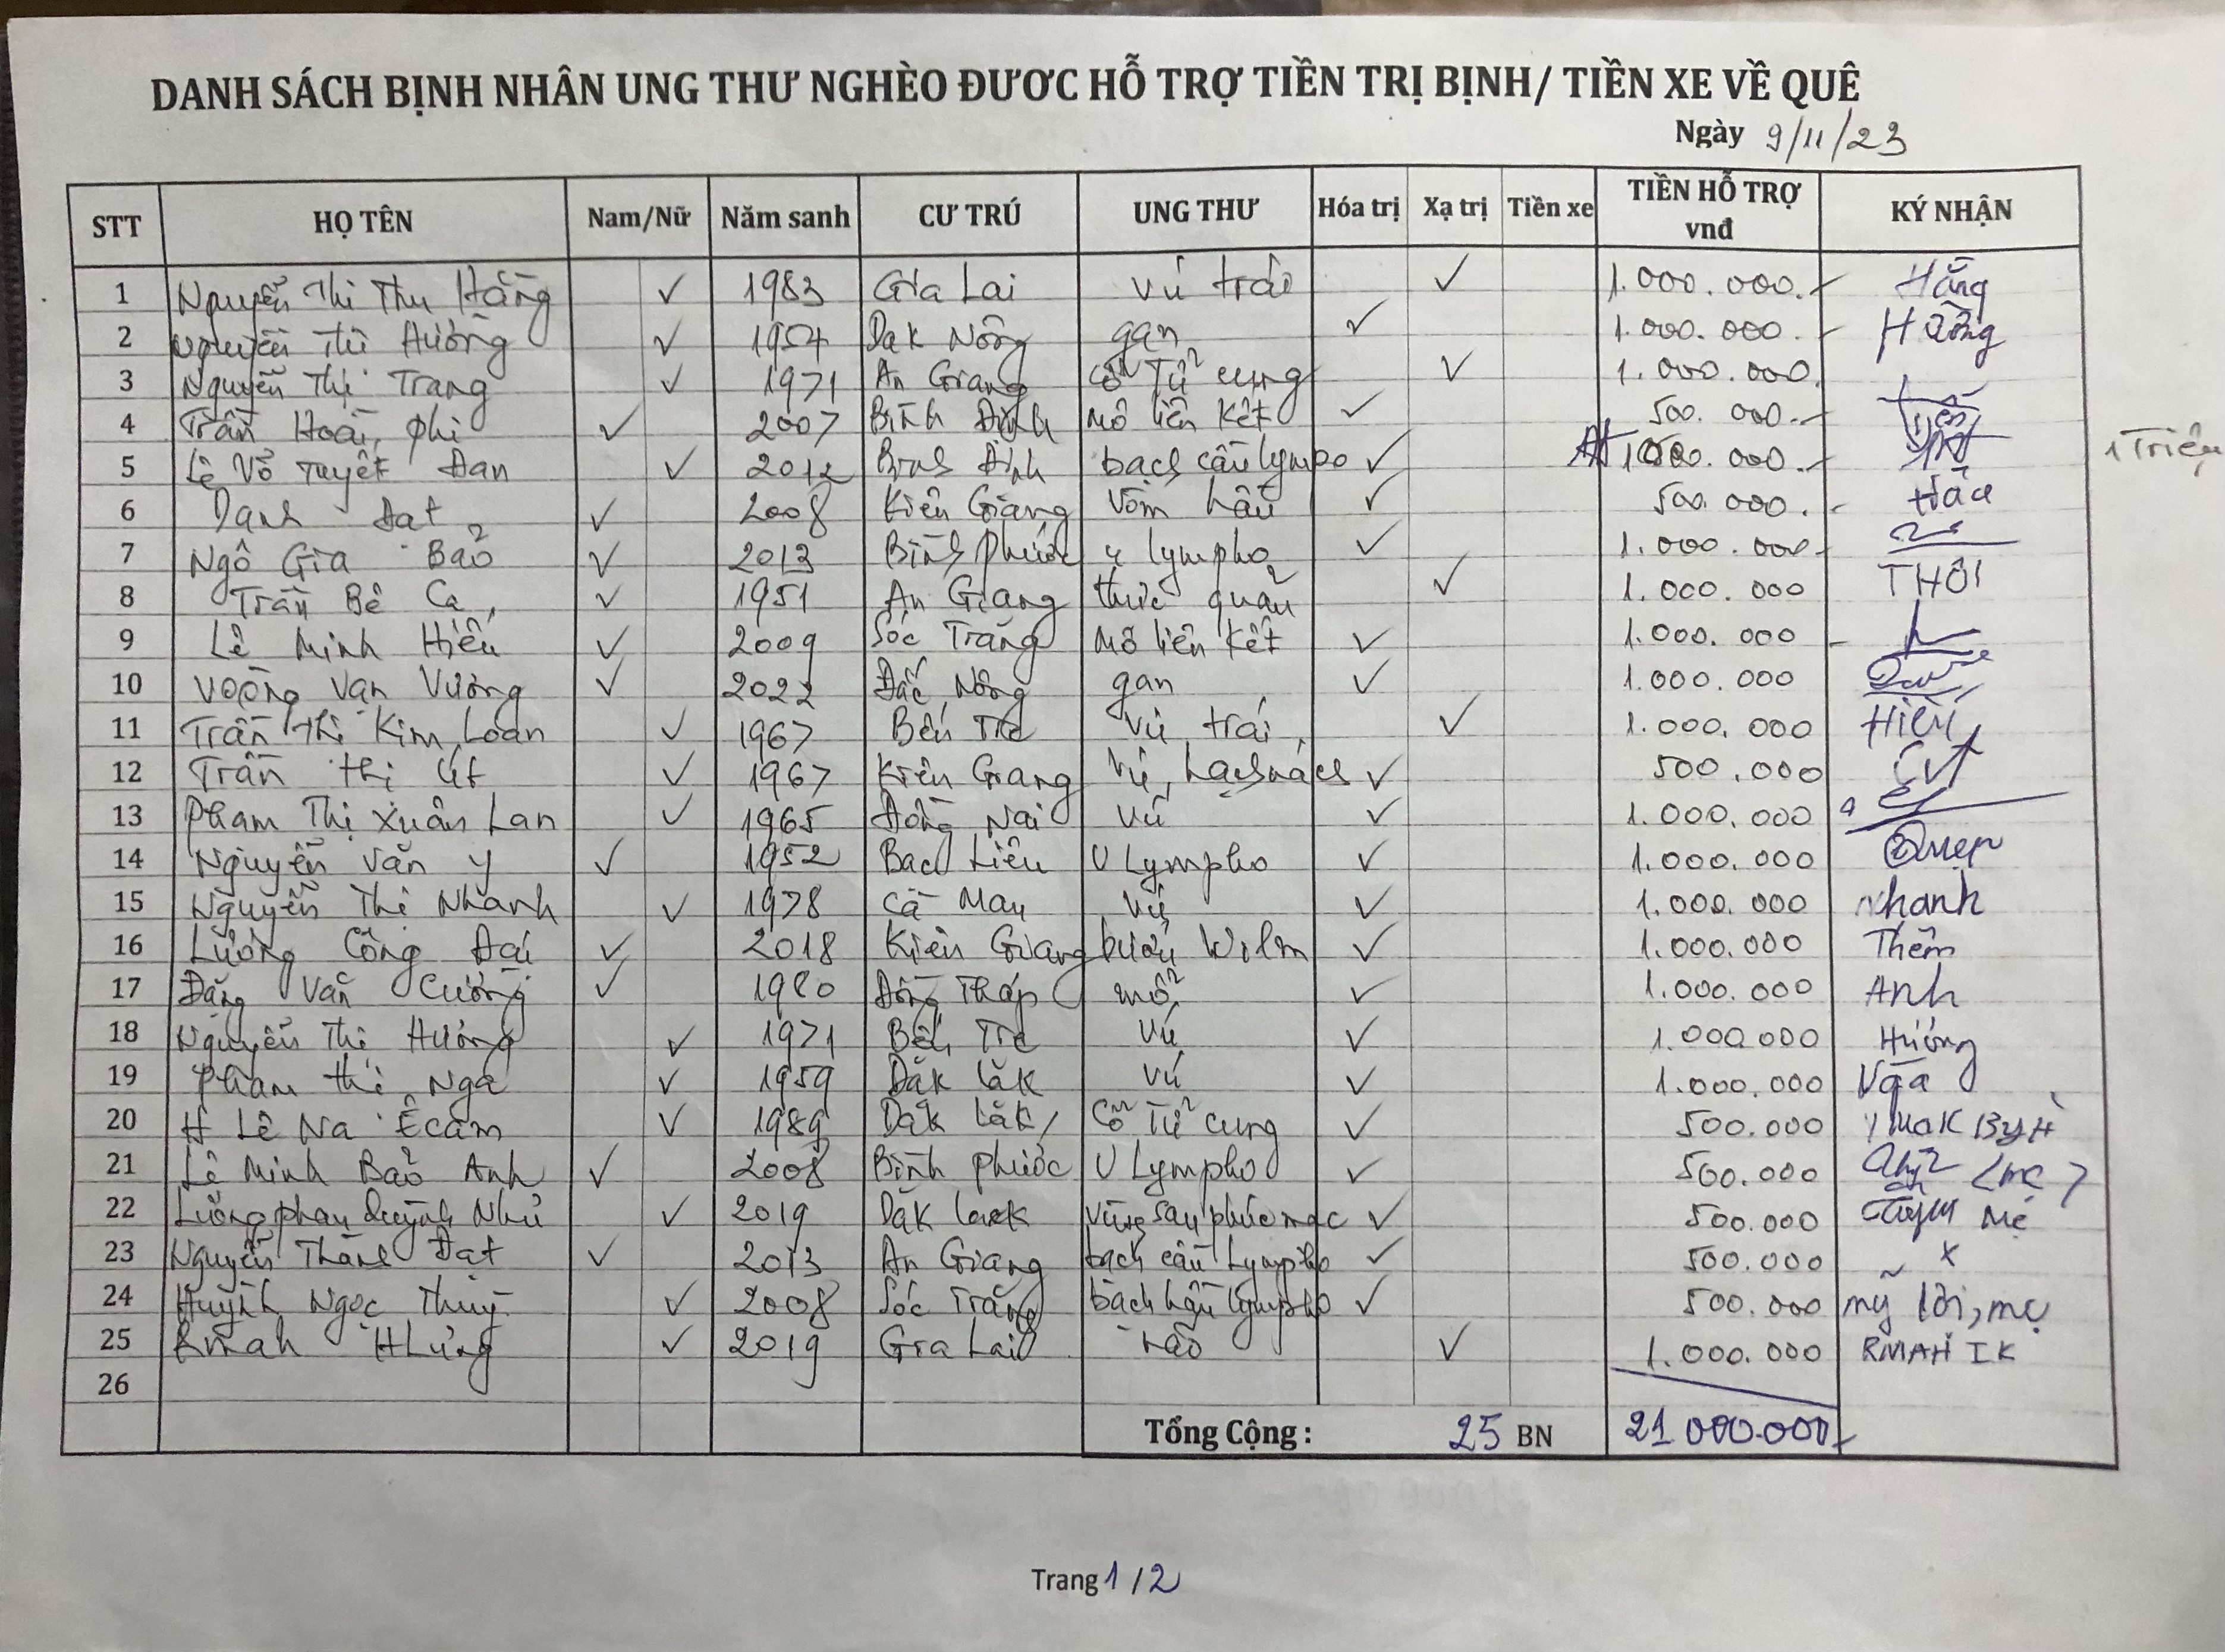 DANH SÁCH BỊNH NHÂN UNG THƯ NGHÈO ĐƯƠC HỖ TRỢ TIỀN TRỊ BỊNH/ TIỀN XE VỀ QUÊ
Ngày 9/11/23
STT HỌ TÊN Nam/Nữ Năm sanh CƯ TRÚ UNG THƯ Hóa trị Xạ trị Tiền xe TIỀN HỖ TRỢ vnđ KÝ NHẬN
1 Nguyễn Thi Thu Hằng ✓ 1983 Gia Lai Vú trái ✓ 1.000.000.- Hằng
2 Nguyễn Thi Hường ✓ 1954 Dak Nông gan ✓ 1.000.000.- Hường
3 Nguyễn Thị Trang ✓ 1971 An Giang Cổ Tử cung ✓ 1.000.000.
4 Trần Hoài Phi ✓ 2007 Bình Định mô liên kết ✓ 500.000.-
5 Lê Võ Tuyết Đan ✓ 2012 Bình Định bạch cầu lympo ✓ 1000.000.- 1 Triệu
6 Danh Đạt ✓ 2008 Kiên Giang Vòm hầu ✓ 500.000.-
7 Ngô Gia Bảo ✓ 2013 Bình Phước u lympho ✓ 1.000.000-
8 Trần Bé Ca ✓ 1951 An Giang thực quản ✓ 1.000.000 THÔI
9 Lê Minh Hiếu ✓ 2009 Sóc Trăng Mô liên kết ✓ 1.000.000 -
10 Voòng Vạn Vương ✓ 2022 Đắc Nông gan ✓ 1.000.000
11 Trần Thị Kim Loan ✓ 1967 Bến Tre Vú trái ✓ 1.000.000 Hiếu
12 Trần Thị Út ✓ 1967 Kiên Giang Vú, hạch nách ✓ 500.000
13 Phạm Thị Xuân Lan ✓ 1965 Đồng Nai Vú ✓ 1.000.000
14 Nguyễn Văn Y ✓ 1952 Bạc Liêu U Lympho ✓ 1.000.000
15 Nguyễn Thị Nhanh ✓ 1978 Cà Mau Vú ✓ 1.000.000 Nhanh
16 Lương Công Đại ✓ 2018 Kiên Giang bướu Wilm ✓ 1.000.000 Thêm
17 Đặng Văn Cường ✓ 1980 Đồng Tháp ✓ 1.000.000 Anh
18 Nguyễn Thị Hương ✓ 1971 Bến Tre Vú ✓ 1.000.000 Hương
19 Phạm Thị Nga ✓ 1959 Đăk lăk Vú ✓ 1.000.000 Nga
20 H Lê Na Êcăm ✓ 1989 Dăk lăk Cổ Tử cung ✓ 500.000 Y MaK BYĂ
21 Lê Minh Bảo Anh ✓ 2008 Bình Phước U Lympho ✓ 500.000
22 Lương phan Quỳnh Như ✓ 2019 Dăk lăk Vùng sau phúc mạc ✓ 500.000 Mẹ
23 Nguyễn Thành Đạt ✓ 2013 An Giang bạch cầu Lympho ✓ 500.000 x
24 Huỳnh Ngọc Thuý ✓ 2008 Sóc Trăng bạch cầu lympho ✓ 500.000 mỹ lời, mẹ
25 Rmah HLưng ✓ 2019 Gia Lai não ✓ 1.000.000 RMAH IK
26
Tổng Cộng : 25 BN 21 000.000-
Trang 1 / 2